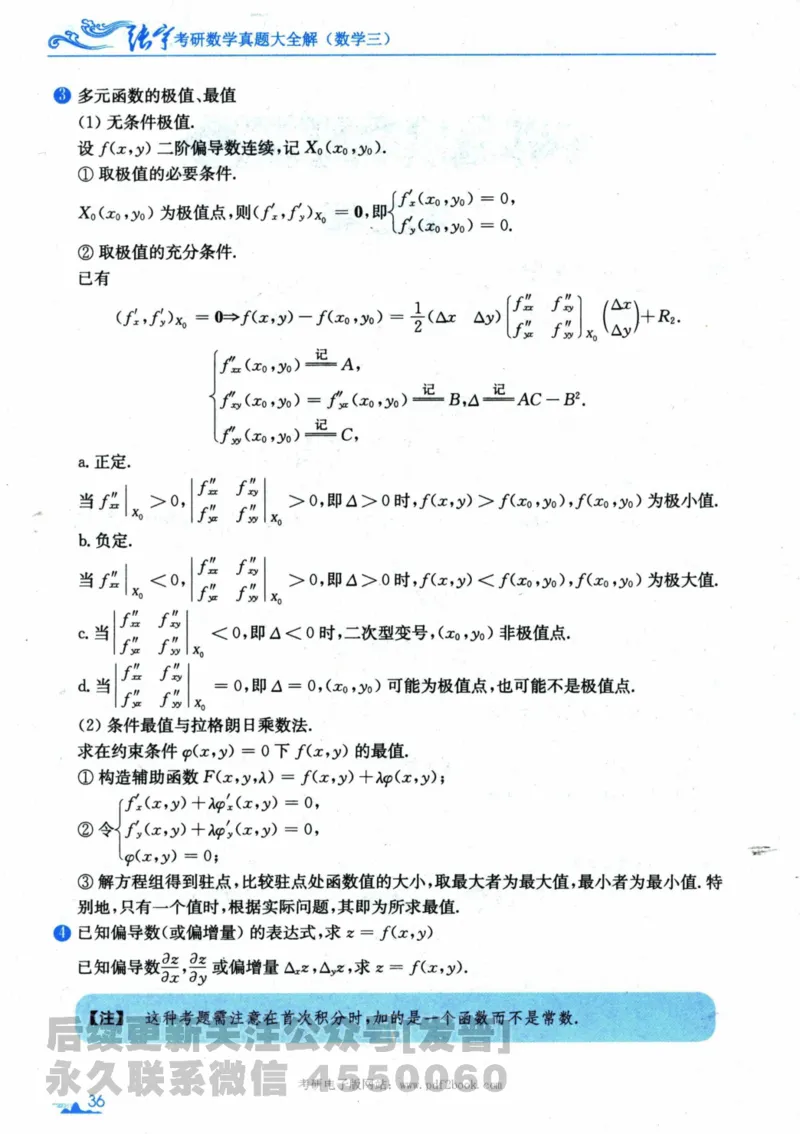 张宇考研数学真题大全解(数学三)
3 多元函数的极值、最值
(1) 无条件极值.
设 f(x,y) 二阶偏导数连续,记 X₀(x₀,y₀).
① 取极值的必要条件.
X₀(x₀,y₀) 为极值点,则(f′ₓ,f′ᵧ)_{X₀} = 0,即{f′ₓ(x₀,y₀) = 0, f′ᵧ(x₀,y₀) = 0.
② 取极值的充分条件.
已有
(f′ₓ,f′ᵧ)_{X₀} = 0⇒f(x,y) − f(x₀,y₀) = 1/2 (Δx Δy) [f″xx f″xy; f″yx f″yy]_{X₀} (Δx; Δy) + R₂.
f″xx(x₀,y₀) ══记══ A,
f″xy(x₀,y₀) = f″yx(x₀,y₀) ══记══ B,Δ ══记══ AC − B².
f″yy(x₀,y₀) ══记══ C,
a. 正定.
当 f″xx|_{X₀} > 0, |f″xx f″xy; f″yx f″yy|_{X₀} > 0,即 Δ > 0 时,f(x,y) > f(x₀,y₀),f(x₀,y₀) 为极小值.
b. 负定.
当 f″xx|_{X₀} < 0, |f″xx f″xy; f″yx f″yy|_{X₀} > 0,即 Δ > 0 时,f(x,y) < f(x₀,y₀),f(x₀,y₀) 为极大值.
c. 当 |f″xx f″xy; f″yx f″yy|_{X₀} < 0,即 Δ < 0 时,二次型变号,(x₀,y₀) 非极值点.
d. 当 |f″xx f″xy; f″yx f″yy|_{X₀} = 0,即 Δ = 0,(x₀,y₀) 可能为极值点,也可能不是极值点.
(2) 条件最值与拉格朗日乘数法.
求在约束条件 φ(x,y) = 0 下 f(x,y) 的最值.
① 构造辅助函数 F(x,y,λ) = f(x,y) + λφ(x,y);
f′ₓ(x,y) + λφ′ₓ(x,y) = 0,
② 令{f′ᵧ(x,y) + λφ′ᵧ(x,y) = 0,
φ(x,y) = 0;
③ 解方程组得到驻点,比较驻点处函数值的大小,取最大者为最大值,最小者为最小值. 特
别地,只有一个值时,根据实际问题,其即为所求最值.
4 已知偏导数(或偏增量) 的表达式,求 z = f(x,y)
已知偏导数 ∂z/∂x, ∂z/∂y 或偏增量 Δₓz,Δᵧz,求 z = f(x,y).
【注】 这种考题需注意在首次积分时,加的是一个函数而不是常数.
后续更新关注公众号[发吾]
永久联系微信 4550060
考研电子版网站:www.pdf2book.com
36